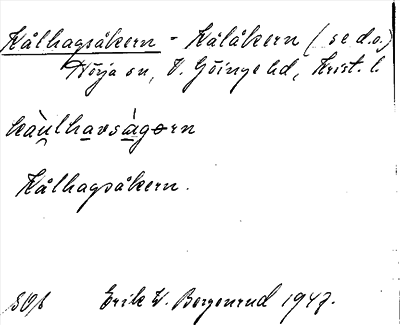 Kålhagsåkern - Kålåkern (se d.o.)
Hörja sn, V. Göinge hd, Krist. l.
kàu̯lhavsàgərn
Kålhagsåkern.
Erik W. Bergenrud 1947.